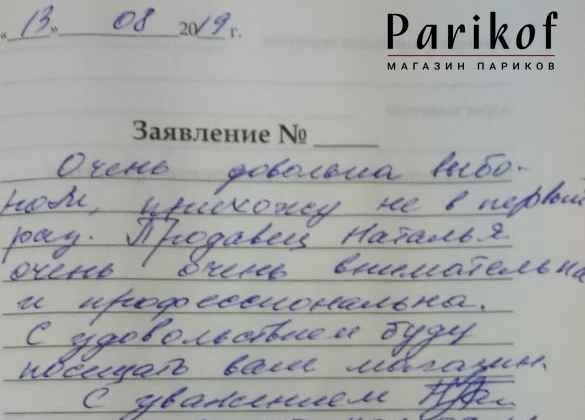 « 13 » 08 2019 г.
Parikof
МАГАЗИН ПАРИКОВ
Заявление №
Очень довольна выбо-
ром, прихожу не в первый
раз. Продавец Наталья
очень очень внимательна
и профессиональна.
С удовольствием буду
посещать ваш магазин.
С уважением